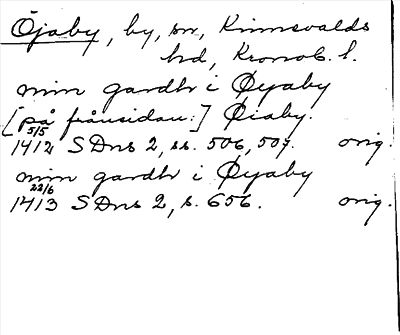 Öjaby, by, sn, Kinnevalds
hd, Kronob. l.
min gardh i Øyaby
[på frånsidan:] Øiaby.
5/5
1412 SDns 2, ss. 506, 507. orig.
min gardh i Øyaby
22/6
1413 SDns 2, s. 656. orig.